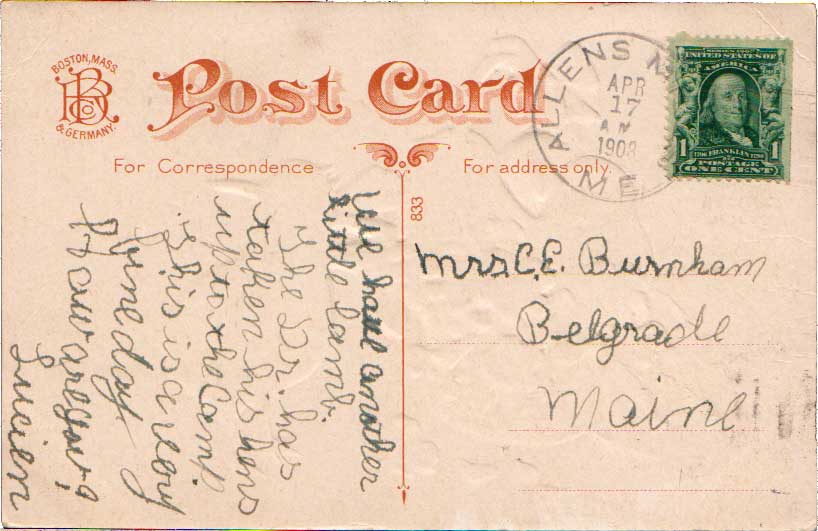 BOSTON, MASS.
RB
Co
& GERMANY.
Post Card
For Correspondence
For address only.
ALLENS M
APR
17
A M
1908
ME
SERIES 1902
UNITED STATES OF
AMERICA
1 1706 FRANKLIN 1790 1
POSTAGE
ONE CENT
833
Mrs C. E. Burnham
Belgrade
Maine
We have another
little lamb.
The Dr. has
taken his hens
up to the Camp
This is a very
fine day
How are you?
Lucien